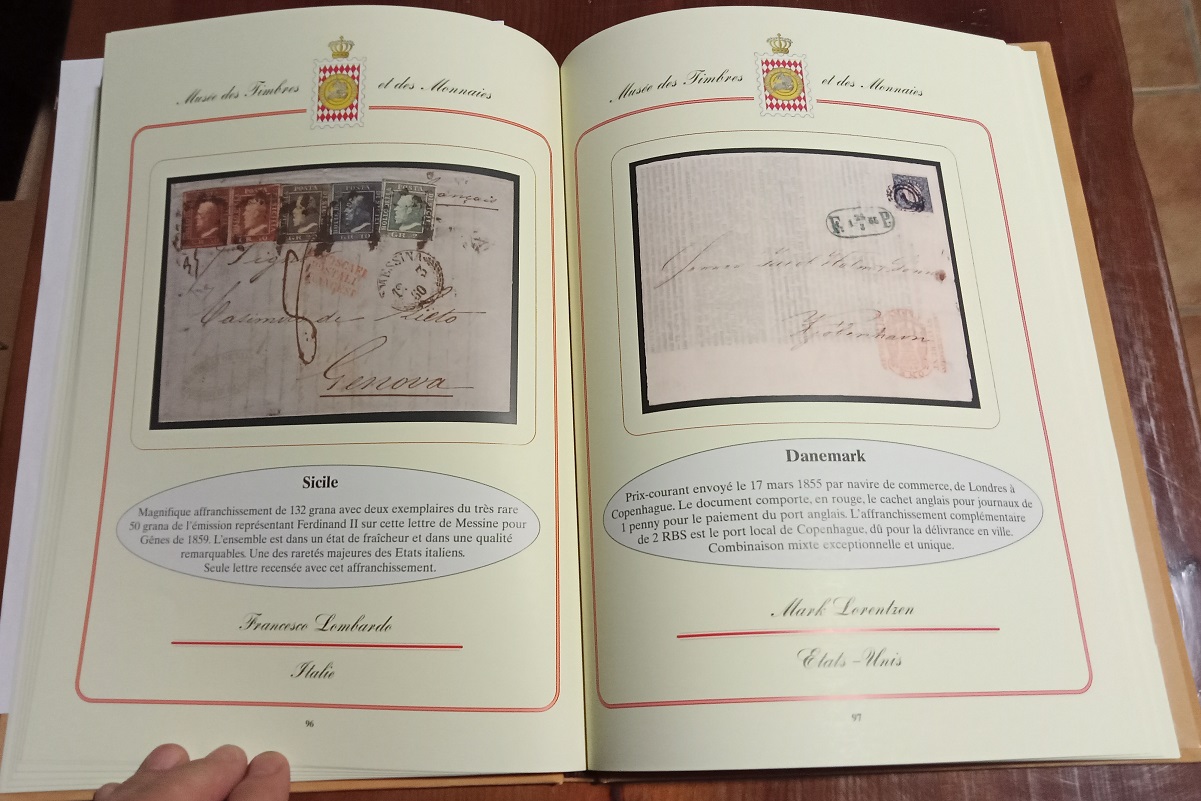 Musée des Timbres et des Monnaies
POSTA
POSTA
français
MESSINA
60
Genova
Sicile
Magnifique affranchissement de 132 grana avec deux exemplaires du très rare
50 grana de l'émission représentant Ferdinand II sur cette lettre de Messine pour
Gênes de 1859. L'ensemble est dans un état de fraîcheur et dans une qualité
remarquables. Une des raretés majeures des Etats italiens.
Seule lettre recensée avec cet affranchissement.
Francesco Lombardo
Italie
96
Musée des Timbres et des Monnaies
Danemark
Prix-courant envoyé le 17 mars 1855 par navire de commerce, de Londres à
Copenhague. Le document comporte, en rouge, le cachet anglais pour journaux de
1 penny pour le paiement du port anglais. L'affranchissement complémentaire
de 2 RBS est le port local de Copenhague, dû pour la délivrance en ville.
Combinaison mixte exceptionnelle et unique.
Mark Lorentzen
Etats-Unis
97